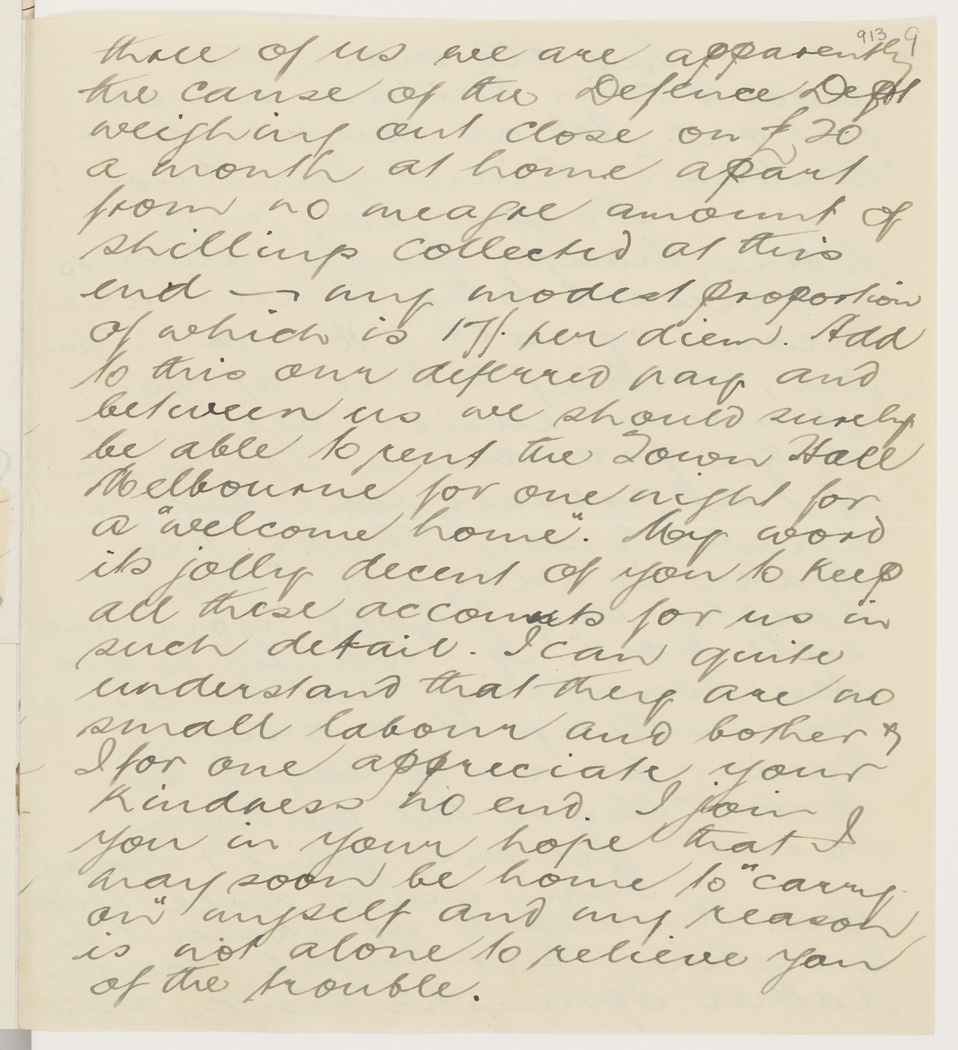 913 9
three of us we are apparently
the cause of the Defence Dept
weighing out close on £20
a month at home apart
from no meagre amount of
shillings collected at this
end — my modest proportion
of which is 17/- per diem. Add
to this our deferred pay and
between us we should surely
be able to rent the Town Hall
Melbourne for one night for
a "welcome home". My word
its jolly decent of you to keep
all these accounts for us in
such detail. I can quite
understand that they are no
small labour and bother &
I for one appreciate your
kindness no end. I join
you in your hope that I
may soon be home to "carry
on" myself and my reason
is not alone to relieve you
of the trouble.